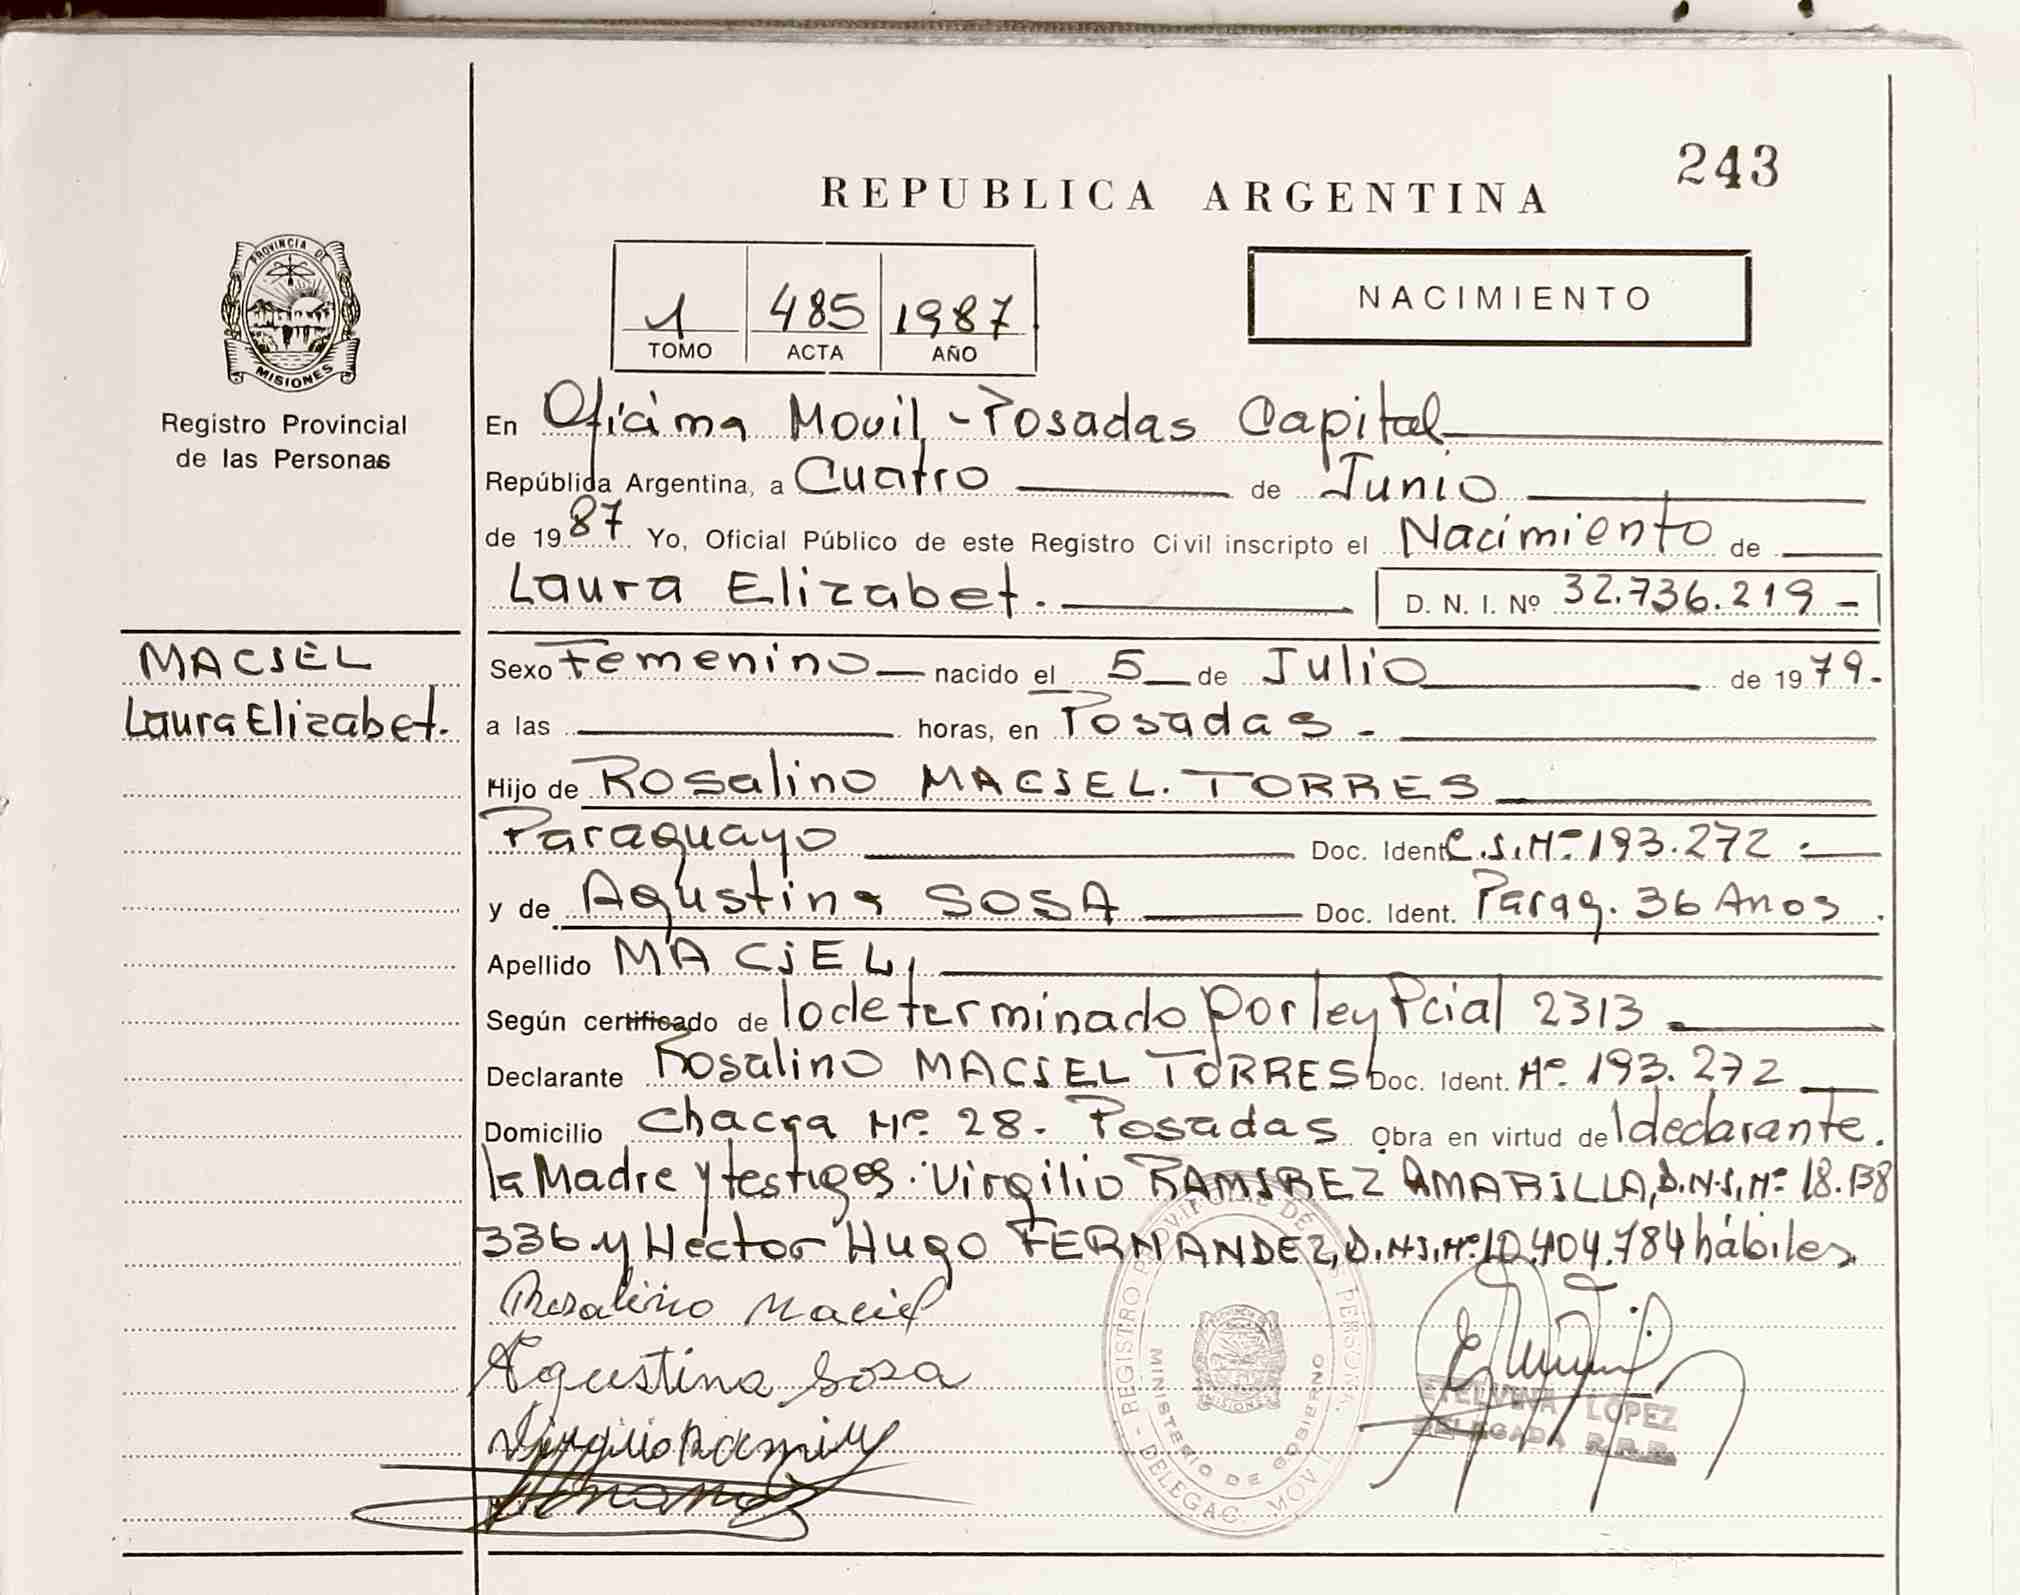 243
REPUBLICA ARGENTINA
PROVINCIA DE
MISIONES
Registro Provincial
de las Personas
1 485 1987
TOMO ACTA AÑO
NACIMIENTO
En Oficina Movil - Posadas Capital
República Argentina, a Cuatro de Junio
de 1987 Yo, Oficial Público de este Registro Civil inscripto el Nacimiento de
Laura Elizabet. D. N. I. Nº 32.736.219 -
MACIEL
Laura Elizabet.
Sexo Femenino nacido el 5 de Julio de 1979.
a las horas, en Posadas -
Hijo de Rosalino MACIEL. TORRES
Paraguayo Doc. Ident. C.I. Nº 193.272 -
y de Agustina SOSA Doc. Ident. Parag. 36 Anos
Apellido MACiEL,
Según certificado de lo determinado por ley Pcial 2313
Declarante Rosalino MACIEL TORRES Doc. Ident. Nº 193.272
Domicilio Chacra Nº 28. Posadas Obra en virtud de l declarante.
la Madre y testigos: Virgilio RAMIREZ AMARiLLA, D.N.I. Nº 18.138
336 y Hector Hugo FERNANDEZ, D.N.I. Nº 10.404.784 hábiles
Rosalino Maciel
Agustina Sosa
Virgilio Ramirez
REGISTRO PROVINCIAL DE LAS PERSONAS - DELEGAC. MOVIL
MINISTERIO DE GOBIERNO
ETELVINA LOPEZ
DELEGADA R.P.P.